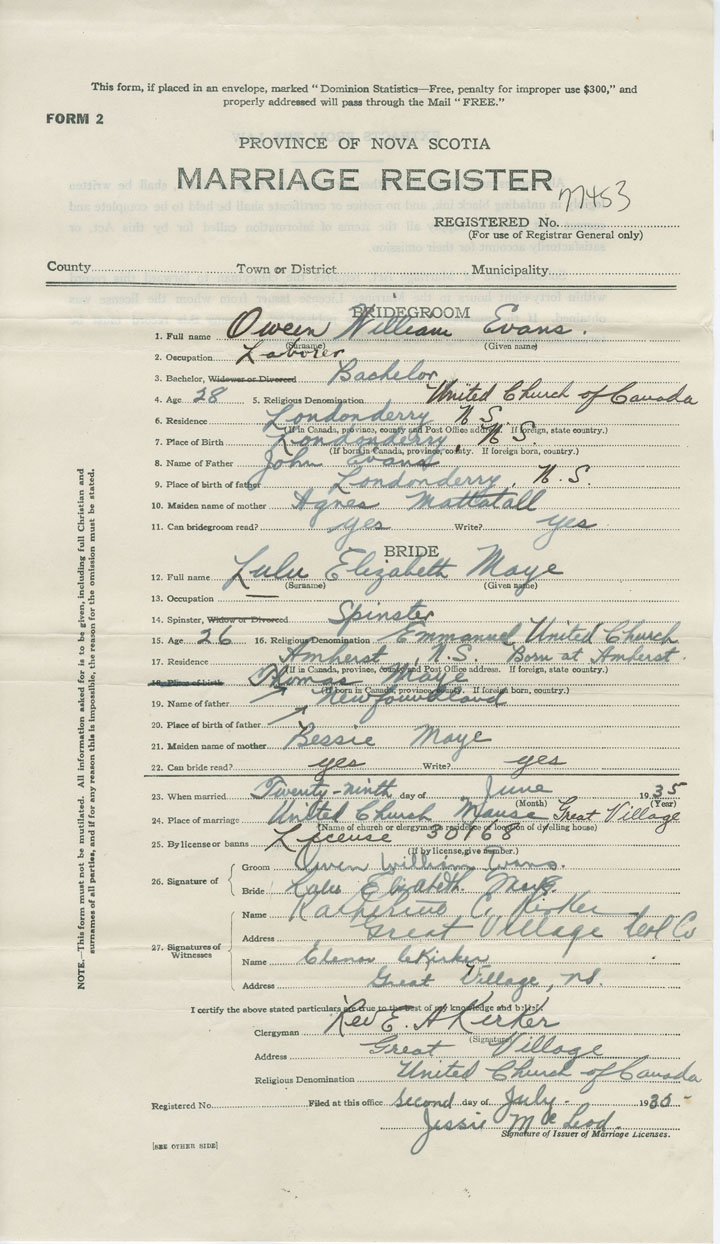 This form, if placed in an envelope, marked "Dominion Statistics—Free, penalty for improper use $300," and
properly addressed will pass through the Mail "FREE."
FORM 2
PROVINCE OF NOVA SCOTIA
MARRIAGE REGISTER
REGISTERED No. 77453
(For use of Registrar General only)
County Town or District Municipality
BRIDEGROOM
1. Full name Owen William Evans.
(Surname) (Given name)
2. Occupation Laborer
3. Bachelor, Widower or Divorced Bachelor
4. Age 28 5. Religious Denomination United Church of Canada
6. Residence Londonderry N.S.
(If in Canada, province, county and Post Office address. If foreign, state country.)
7. Place of Birth Londonderry, N.S.
(If born in Canada, province, county. If foreign born, country.)
8. Name of Father John Evans
9. Place of birth of father Londonderry, N.S.
10. Maiden name of mother Agnes Mattatall
11. Can bridegroom read? yes Write? yes
BRIDE
12. Full name Lulu Elizabeth Maye
(Surname) (Given name)
13. Occupation —
14. Spinster, Widow or Divorced Spinster
15. Age 26 16. Religious Denomination Emmanuel United Church
17. Residence Amherst, N.S. Born at Amherst.
(If in Canada, province, county and Post Office address. If foreign, state country.)
18. Place of birth Thomas Maye
(If born in Canada, province, county. If foreign born, country.)
19. Name of father Newfoundland
20. Place of birth of father
21. Maiden name of mother Bessie Maye
22. Can bride read? yes Write? yes
23. When married Twenty-ninth day of June 1935
(Month) (Year)
24. Place of marriage United Church Manse Great Village
(Name of church or clergyman's residence or location of dwelling house)
25. By license or banns License 30168
(If by license, give number.)
26. Signature of
Groom Owen William Evans.
Bride Lulu Elizabeth Maye.
27. Signatures of Witnesses
Name Katherine C. Kirker
Address Great Village Col Co
Name Elenor Kirker
Address Great Village, N.S.
I certify the above stated particulars are true to the best of my knowledge and belief.
Clergyman Rev E. A Kirker
(Signature)
Address Great Village
Religious Denomination United Church of Canada
Registered No. Filed at this office second day of July 1935
Jessie McLeod.
Signature of Issuer of Marriage Licenses.
[SEE OTHER SIDE]
NOTE.—This form must not be mutilated. All information asked for is to be given, including full Christian and
surnames of all parties, and if for any reason this is impossible, the reason for the omission must be stated.